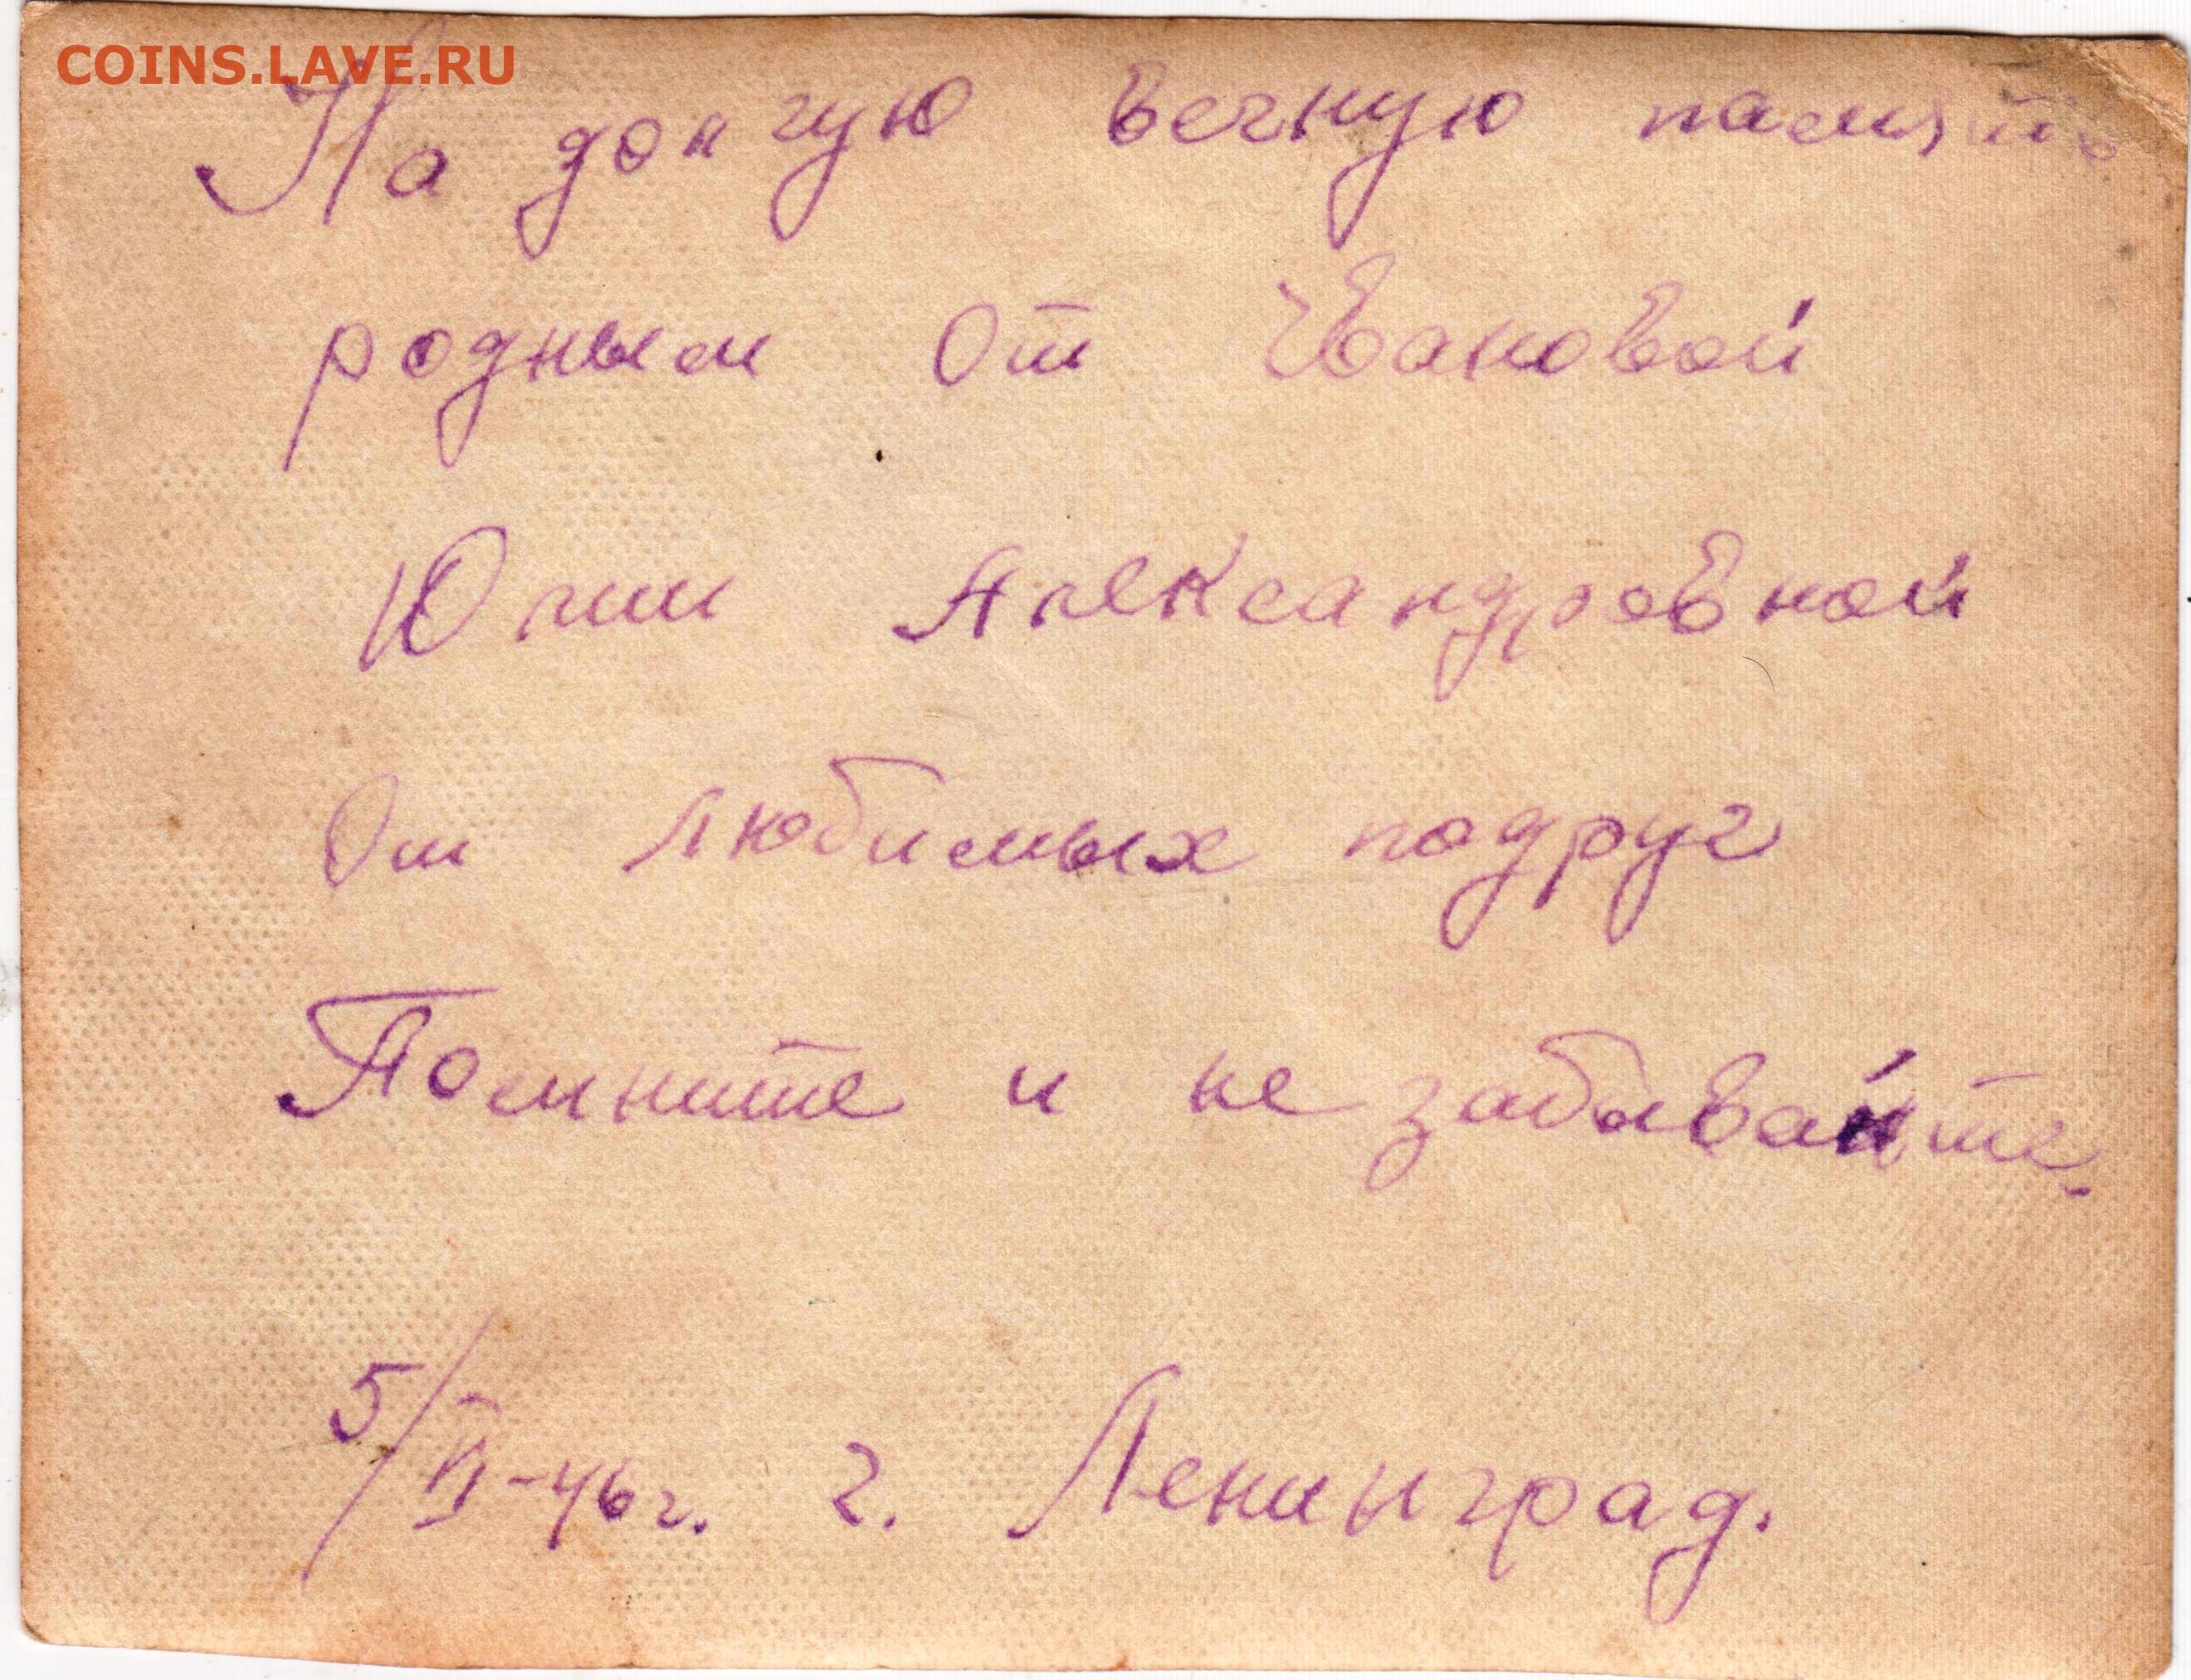 COINS.LAVE.RU
На долгую вечную память
родным От Ивановой
Юлии Александровной
От любимых подруг
Помните и не забывайте.
5/VI-46г. г. Ленинград.